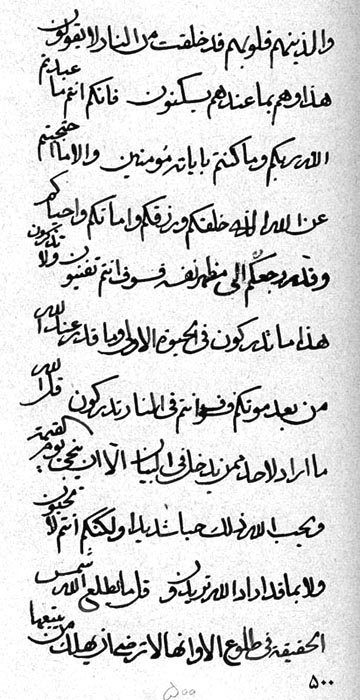 والذينهم قلوبهم قد خلقت من النار لا يقولون
هذا وهم بما عندهم يسكنون فانكم انتم ما عبدتم
الله ربكم وما كنتم باياته مؤمنين والا ما احتجبتم
عن الله الذي خلقكم ورزقكم واماتكم واحياكم
وقد مرجعكم الى مظهر نفسه فسوف انتم تفنيون ولا تدركون
هذا ما تدركون في الحيوة الاولى وما قدر عند الله
من بعد موتكم انتم في النار تدركون قل الله
ما اراد لاحد ممن يدخل في البيان الا ان ينجى يوم القيمة
ويحب الله ذلك حبا شديدا ولكنكم انتم لا تحبون
ولا بما قد اراد الله تريدون قل ما تطلع الله شمس
الحقيقة في طلوع الا وانها لا ترضى ان يهلك من يتبعها
۵۰۰
۵۰۰